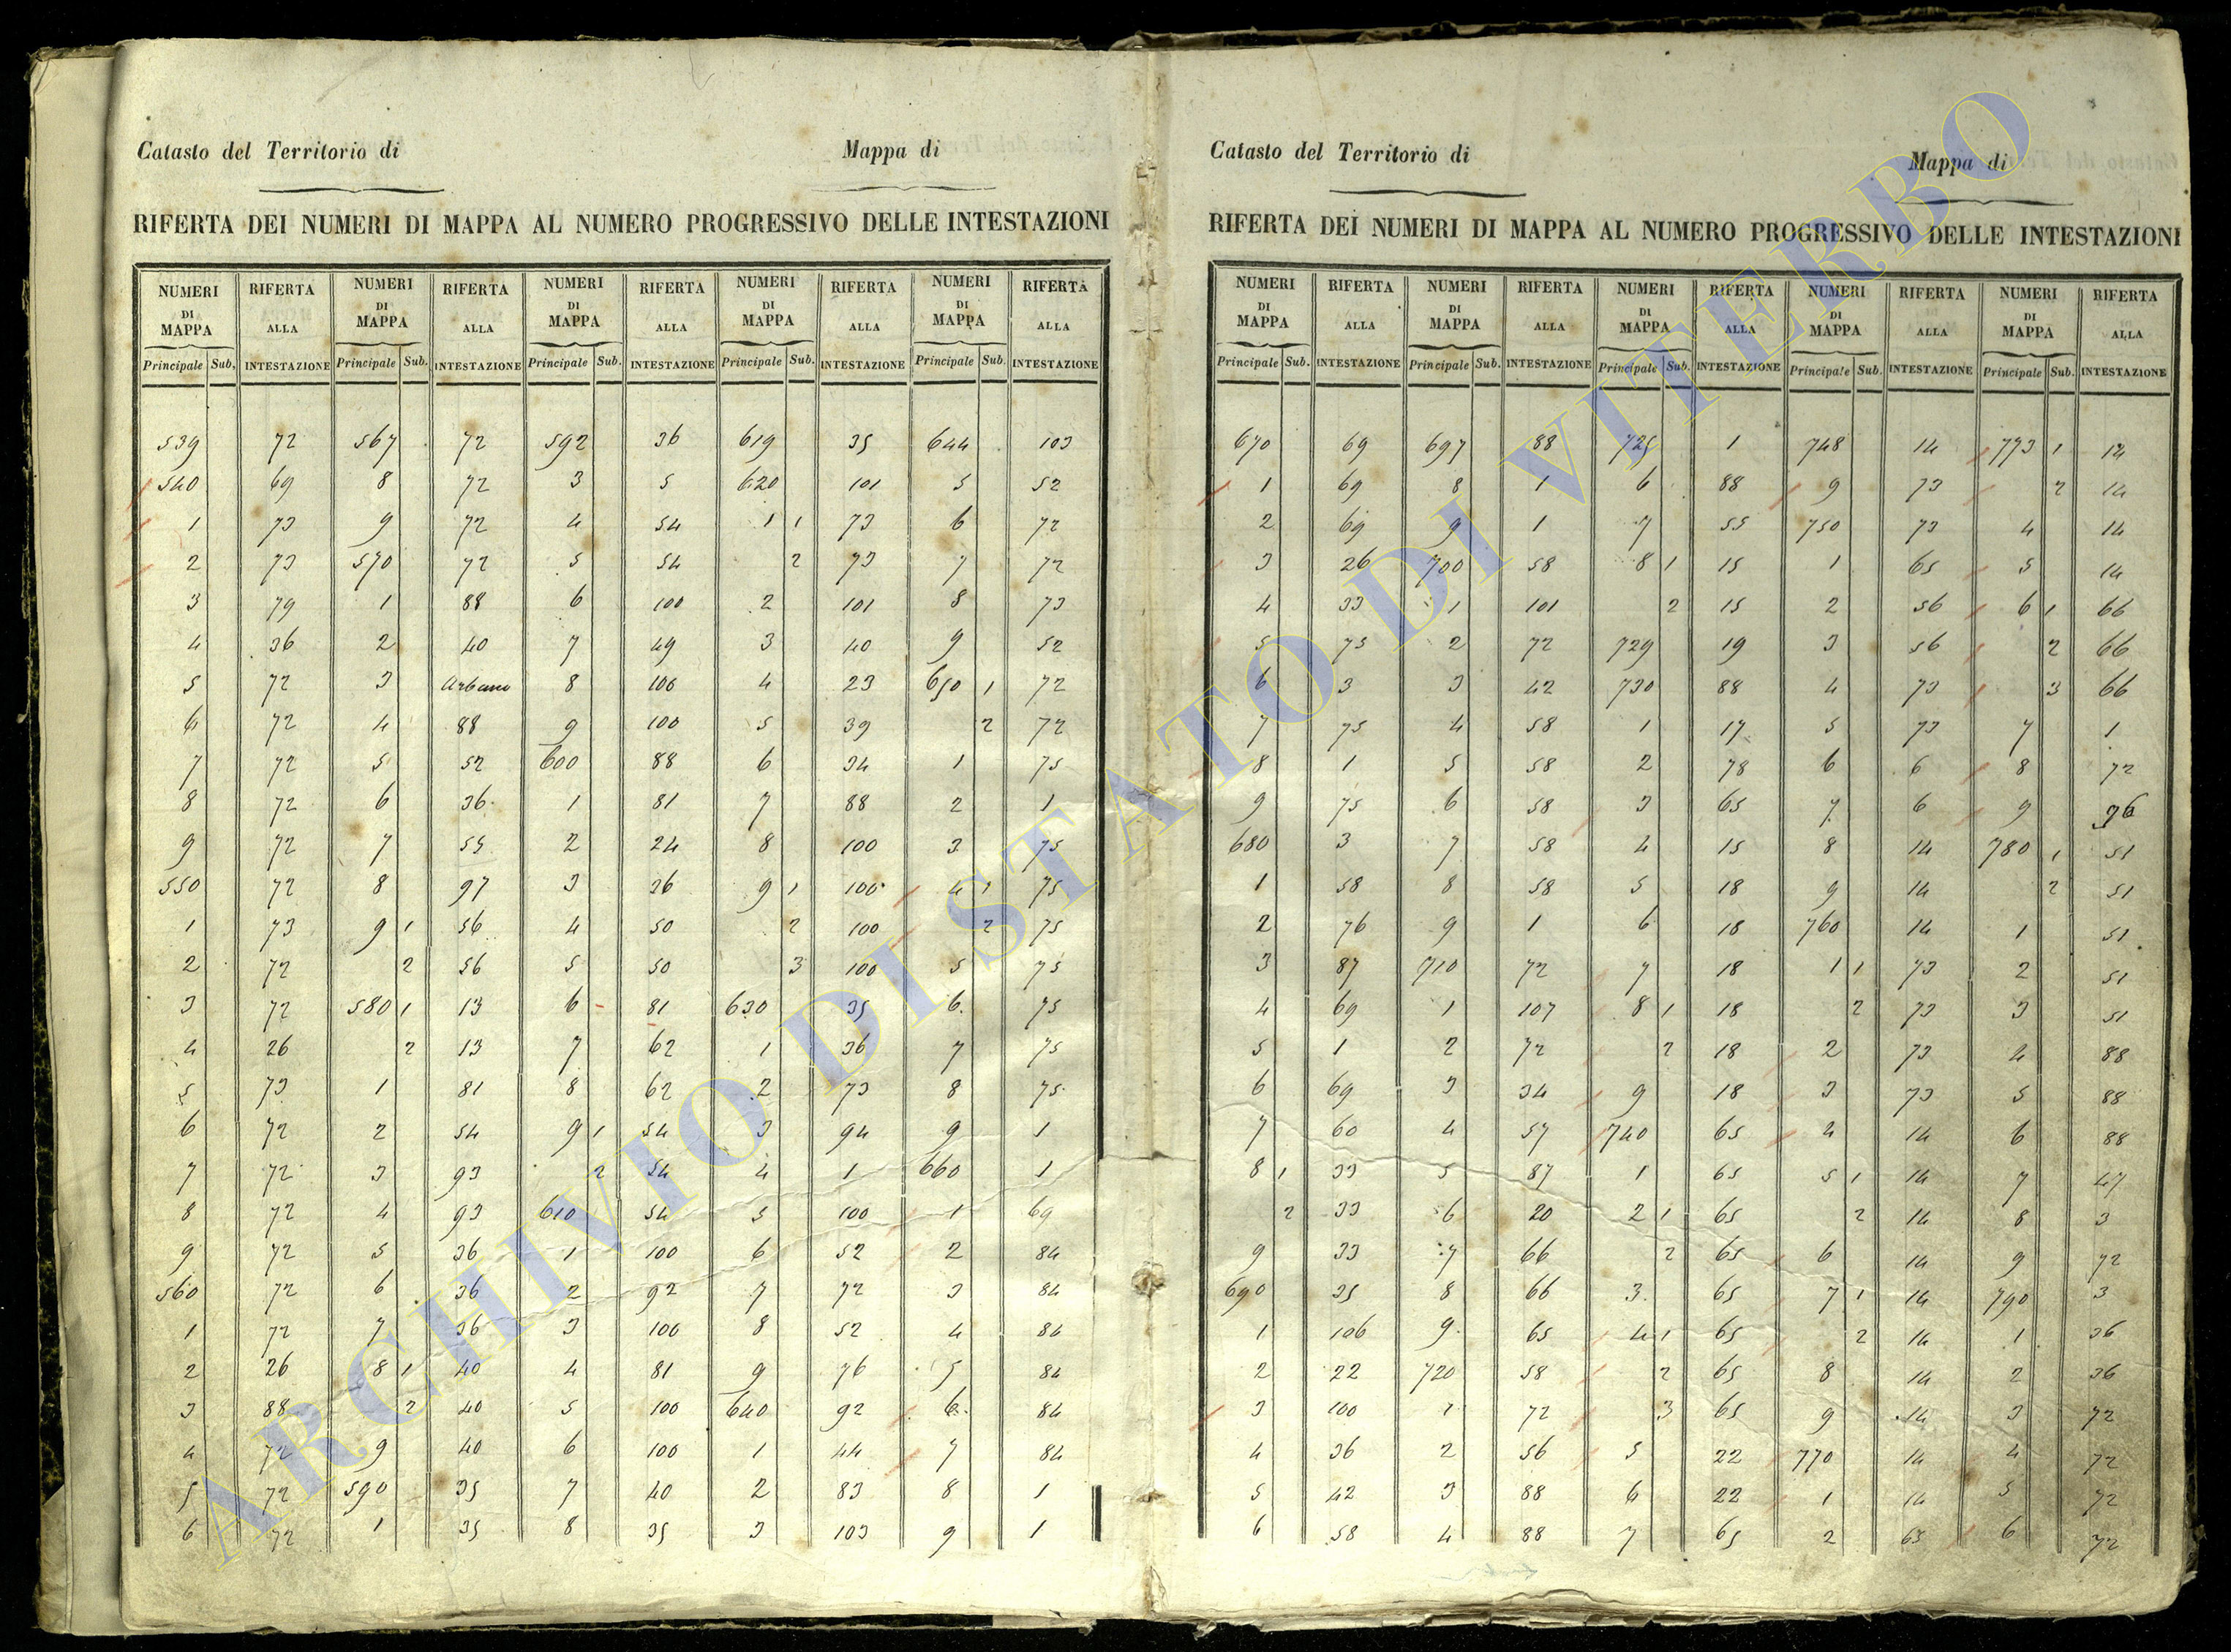 Catasto del Territorio di Mappa di
RIFERTA DEI NUMERI DI MAPPA AL NUMERO PROGRESSIVO DELLE INTESTAZIONI
NUMERI RIFERTA NUMERI RIFERTA NUMERI RIFERTA NUMERI RIFERTA NUMERI RIFERTA
DI DI DI DI DI
MAPPA ALLA MAPPA ALLA MAPPA ALLA MAPPA ALLA MAPPA ALLA
Principale Sub. INTESTAZIONE Principale Sub. INTESTAZIONE Principale Sub. INTESTAZIONE Principale Sub. INTESTAZIONE Principale Sub. INTESTAZIONE
539 72 567 72 592 36 619 35 644 103
540 69 8 72 3 5 620 101 5 52
1 73 9 72 4 54 1 1 73 6 72
2 73 570 72 5 54 2 73 7 72
3 79 1 88 6 100 2 101 8 73
4 36 2 40 7 49 3 40 9 52
5 72 3 Urbano 8 100 4 23 650 1 72
6 72 4 88 9 100 5 39 2 72
7 72 5 52 600 88 6 34 1 75
8 72 6 36 1 81 7 88 2 1
9 72 7 55 2 24 8 100 3 75
550 72 8 97 3 36 9 1 100 4 1 75
1 73 9 1 56 4 50 2 100 2 75
2 72 2 56 5 50 3 100 5 75
3 72 580 1 13 6 81 630 35 6 75
4 26 2 13 7 62 1 36 7 75
5 73 1 81 8 62 2 73 8 75
6 72 2 54 9 1 54 3 94 9 1
7 72 3 93 2 54 4 1 660 1
8 72 4 93 610 54 5 100 1 69
9 72 5 36 1 100 6 52 2 84
560 72 6 36 2 92 7 72 3 84
1 72 7 36 3 100 8 52 4 84
2 26 8 1 40 4 81 9 76 5 84
3 88 2 40 5 100 640 92 6 84
4 72 9 40 6 100 1 44 7 84
5 72 590 35 7 40 2 83 8 1
6 72 1 35 8 35 3 103 9 1
Catasto del Territorio di Mappa di
RIFERTA DEI NUMERI DI MAPPA AL NUMERO PROGRESSIVO DELLE INTESTAZIONI
NUMERI RIFERTA NUMERI RIFERTA NUMERI RIFERTA NUMERI RIFERTA NUMERI RIFERTA
DI DI DI DI DI
MAPPA ALLA MAPPA ALLA MAPPA ALLA MAPPA ALLA MAPPA ALLA
Principale Sub. INTESTAZIONE Principale Sub. INTESTAZIONE Principale Sub. INTESTAZIONE Principale Sub. INTESTAZIONE Principale Sub. INTESTAZIONE
670 69 697 88 725 1 748 14 773 1 14
1 69 8 1 6 88 9 73 2 14
2 69 9 1 7 55 750 73 4 14
3 26 700 58 8 1 15 1 65 5 14
4 33 1 101 2 15 2 56 6 1 66
5 75 2 72 729 19 3 56 2 66
6 3 3 42 730 88 4 73 3 66
7 75 4 58 1 17 5 73 7 1
8 1 5 58 2 78 6 6 8 72
9 75 6 58 3 65 7 6 9 36
680 3 7 58 4 15 8 14 780 1 51
1 58 8 58 5 18 9 14 2 51
2 76 9 1 6 18 760 14 1 51
3 87 710 72 7 18 1 1 73 2 51
4 69 1 107 8 1 18 2 73 3 51
5 1 2 72 2 18 2 73 4 88
6 69 3 34 9 18 3 73 5 88
7 60 4 57 740 65 4 14 6 88
8 1 33 5 87 1 65 5 1 14 7 47
2 33 6 20 2 1 65 2 14 8 3
9 33 7 66 2 65 6 14 9 72
690 35 8 66 3 65 7 1 14 790 3
1 106 9 65 4 1 65 2 14 1 36
2 22 720 58 2 65 8 14 2 36
3 100 1 72 3 65 9 14 3 72
4 36 2 56 5 22 770 14 4 72
5 42 3 88 6 22 1 14 5 72
6 58 4 88 7 65 2 63 6 72
ARCHIVIO DI STATO DI VITERBO